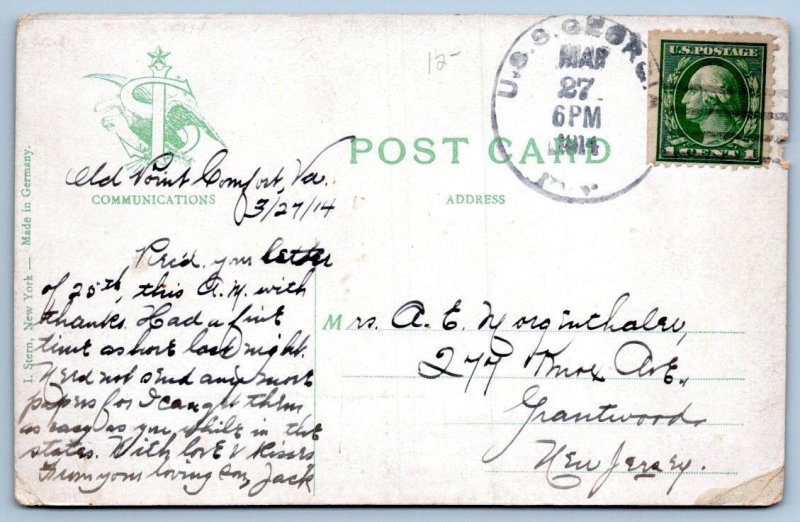 12-
U.S.S. GEORGIA
MAR
27
6 PM
1914
U.S. POSTAGE
1 CENT 1
POST CARD
COMMUNICATIONS
ADDRESS
I. Stern, New York — Made in Germany.
Old Point Comfort, Va.
3/27/14
Rec'd. your letter
of 25th, this A.M. with
thanks. Had a fine
time ashore last night.
Need not send any more
papers for I can get them
as easy as you, while in the
states. With love & Kisses
From your loving son, Jack
Mrs. A. E. Morginthaler,
277 Knox Ave.,
Grantwood,
New Jersey.